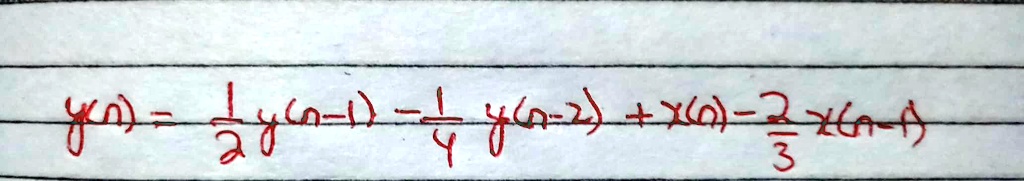 y(n) = 1/2 y(n-1) - 1/4 y(n-2) + x(n) - 2/3 x(n-1)